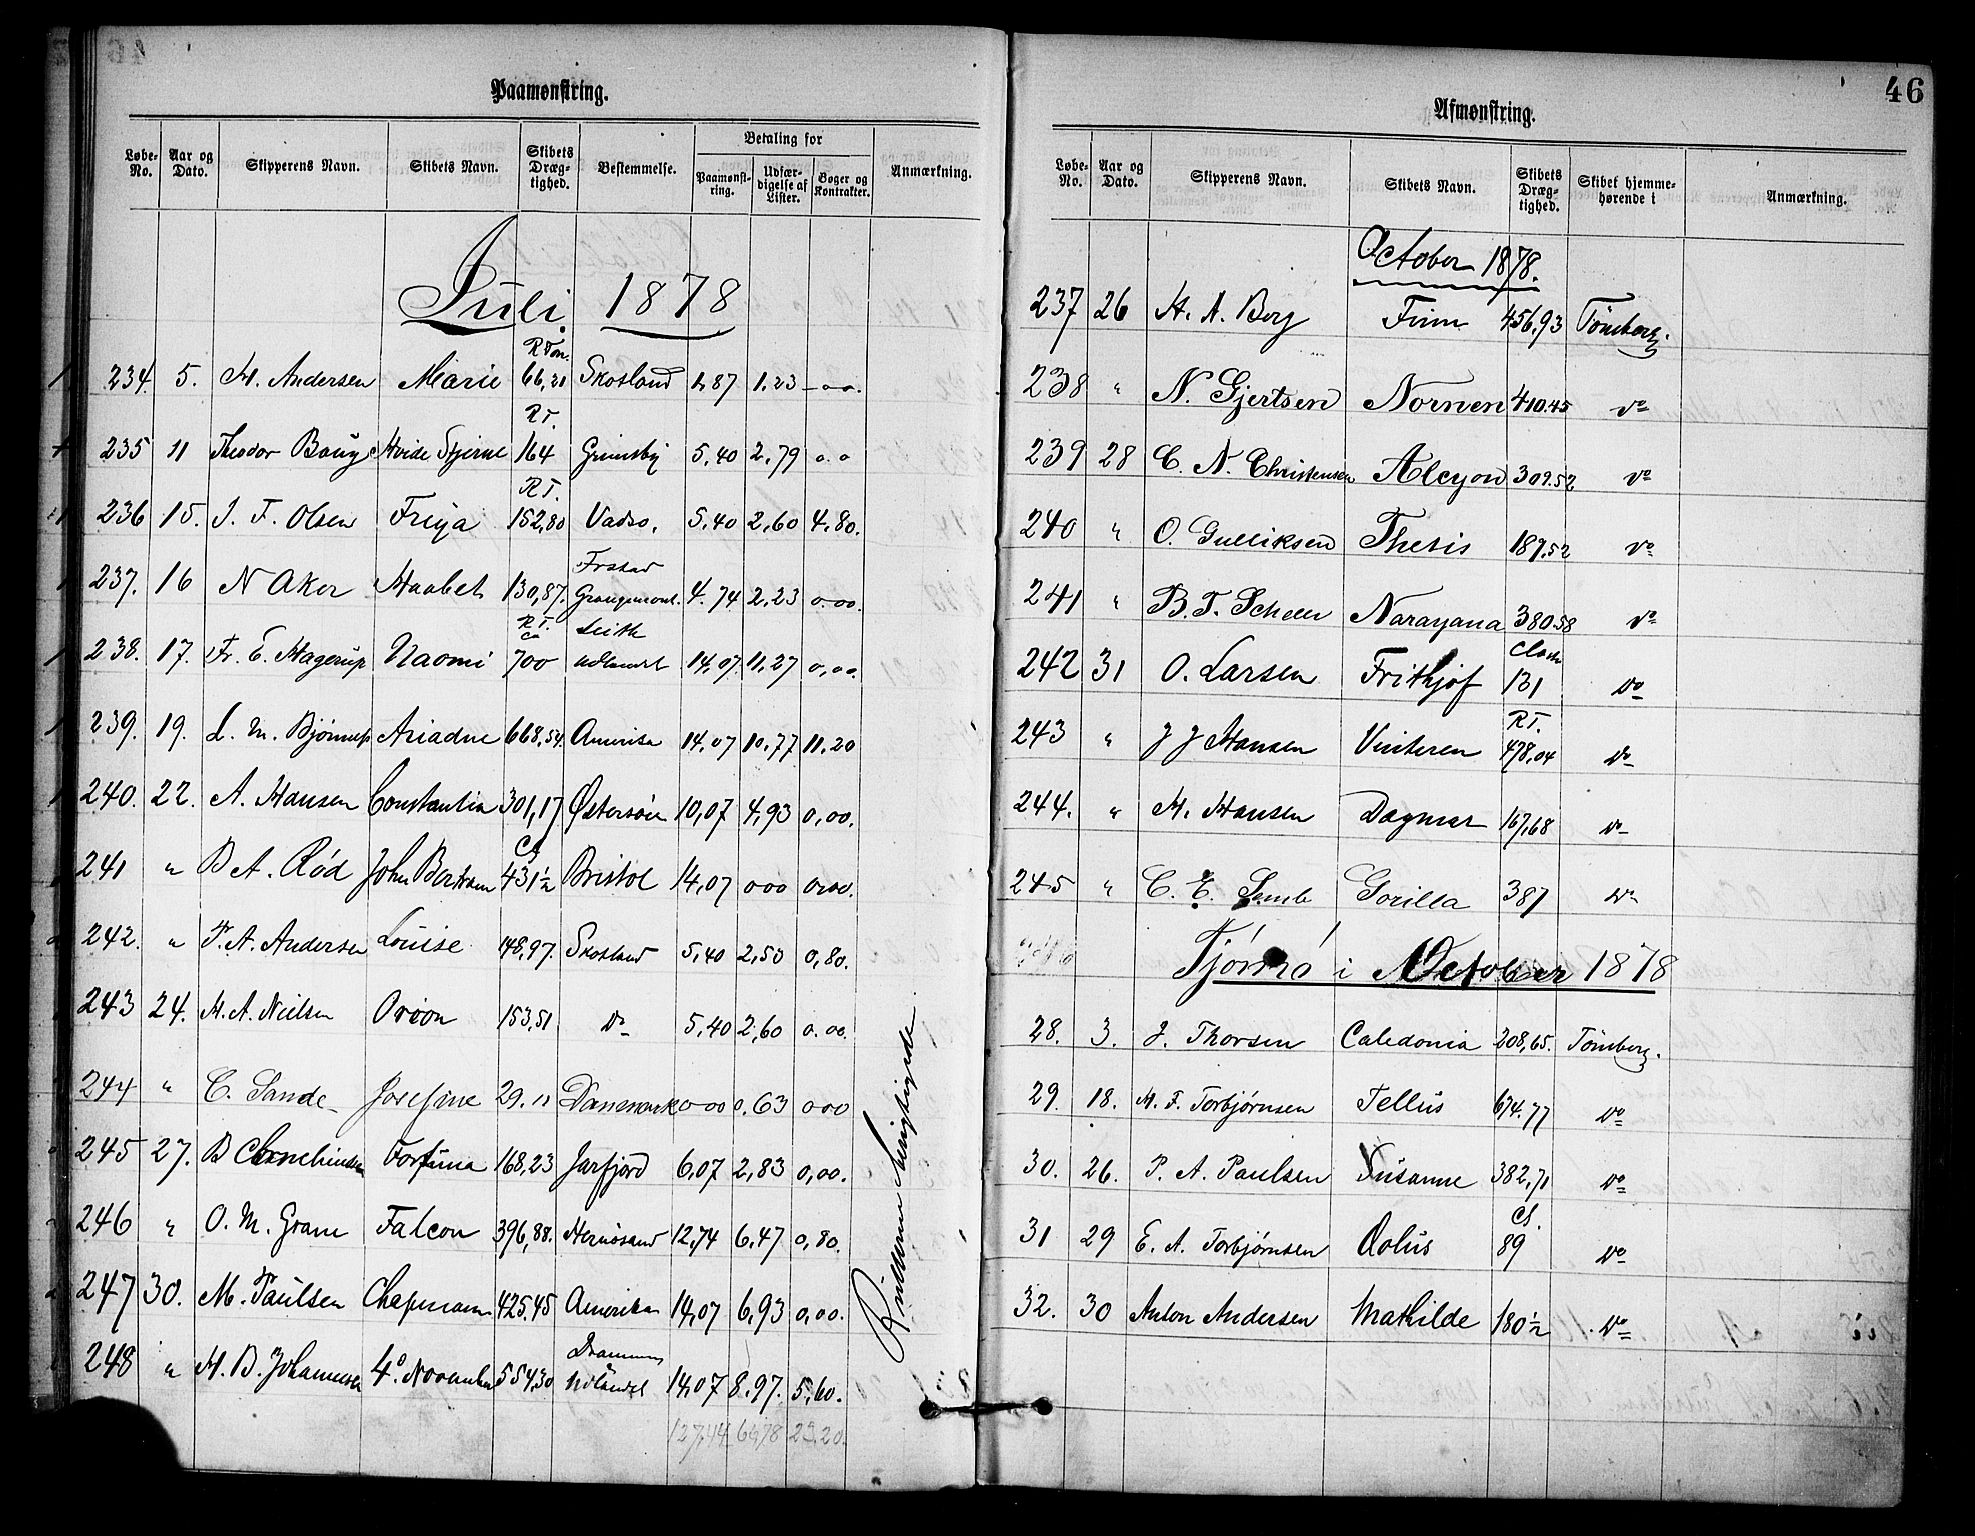 46
Paamønstring.
Løbe-No. Aar og Dato. Skipperens Navn. Skibets Navn. Skibets Dræg-tighed. Bestemmelse. Betaling for Paamønst-ring. Udfær-digelse af Lister. Bøger og Kontrakter. Anmærkning.
Juli 1878
R Ton.
234. 5. H. Andersen Marie 66,21 Skotland 1,87 1.23 -oo.
R T.
235 11 Theodor Baug Hvide Stjerne 164 Grimsby 5,40 2,79 o.o
R T.
236 15. J. F. Olsen Freya 152,80 Vadsø, 5,40 2,60 4,80.
237. 16 N Aker Haabet 130,87. Grangemout. 4.74 2,23 o.oo.
R T. Ca Leith
238. 17. Fr. E. Hagerup Naomi 700 udlandet 14,07. 11,27 0,00.
239. 19. L. M. Bjønnes Ariadne 668,54. Amerika 14,07 10,77 11,20
240. 22. A. Hansen Constantia 301,17. Østersøen 10,07 4,93 0,00.
Cl
241 " B A. Rød John Bertram 431½ Bristol 14,07 000 0,00.
242. " F. A. Andersen Louise 148,97. Skotland 5,40 2,50 0,80.
243 24. H. A. Nielsen Orion 153,51 Do 5,40 2,60 0.00.
244 " C. Sande Josefine 29.11 Danemark 0,00 0,63 000
245 27. B Cornelius­sen Fortuna 168,23 Jarfjord 6,07 2,83 0,00.
246 " O. M. Grane Falcon 396,88. Hernøsand 12,74 6,47 0,80.
247 30. M. Paulsen Chapman 425.45 Amerika 14,07 6,93 0,00.
Drammen
248 " H. B. Johannesen 4de November 554,30 Udlandet 14,07 8,97. 5,60.
127,44 64,78 23.20.
Afmønstring.
Løbe-No. Aar og Dato. Skipperens Navn. Skibets Navn. Skibets Dræg-tighed. Skibet hjemme-hørende i Anmærkning.
October 1878.
237 26 H. A. Berg Finn 456,93 Tønsberg.
238 " N. Gjertsen Nornen 410.45 Do
239 28 C. N. Christensen Alcyon 309.52 Do
240 " O. Gulliksen Thetis 187.52 Do
241 " B. T. Scheer Narayana 380.58 Do
242 31 O. Larsen Frithjof 131 Do
R T.
243 " J J Hansen Vinteren 478,04 Do
244. " H. Hansen Dagmar 167,68 Do
245 " C. E. Semb Gorilla 387 Do
Tjømø i October 1878
28. 3. J. Thorsen Caledonia 208,65. Tønsberg.
29. 18. H. F. Torbjørnsen Tellus 674.77 Do
30. 26. P. A. Paulsen Susanne 382,71 Do
Cl.
31 29 E. A. Torbjørnsen Æolus 89 Do
32. 30 Anton Andersen Mathilde 180½ Do